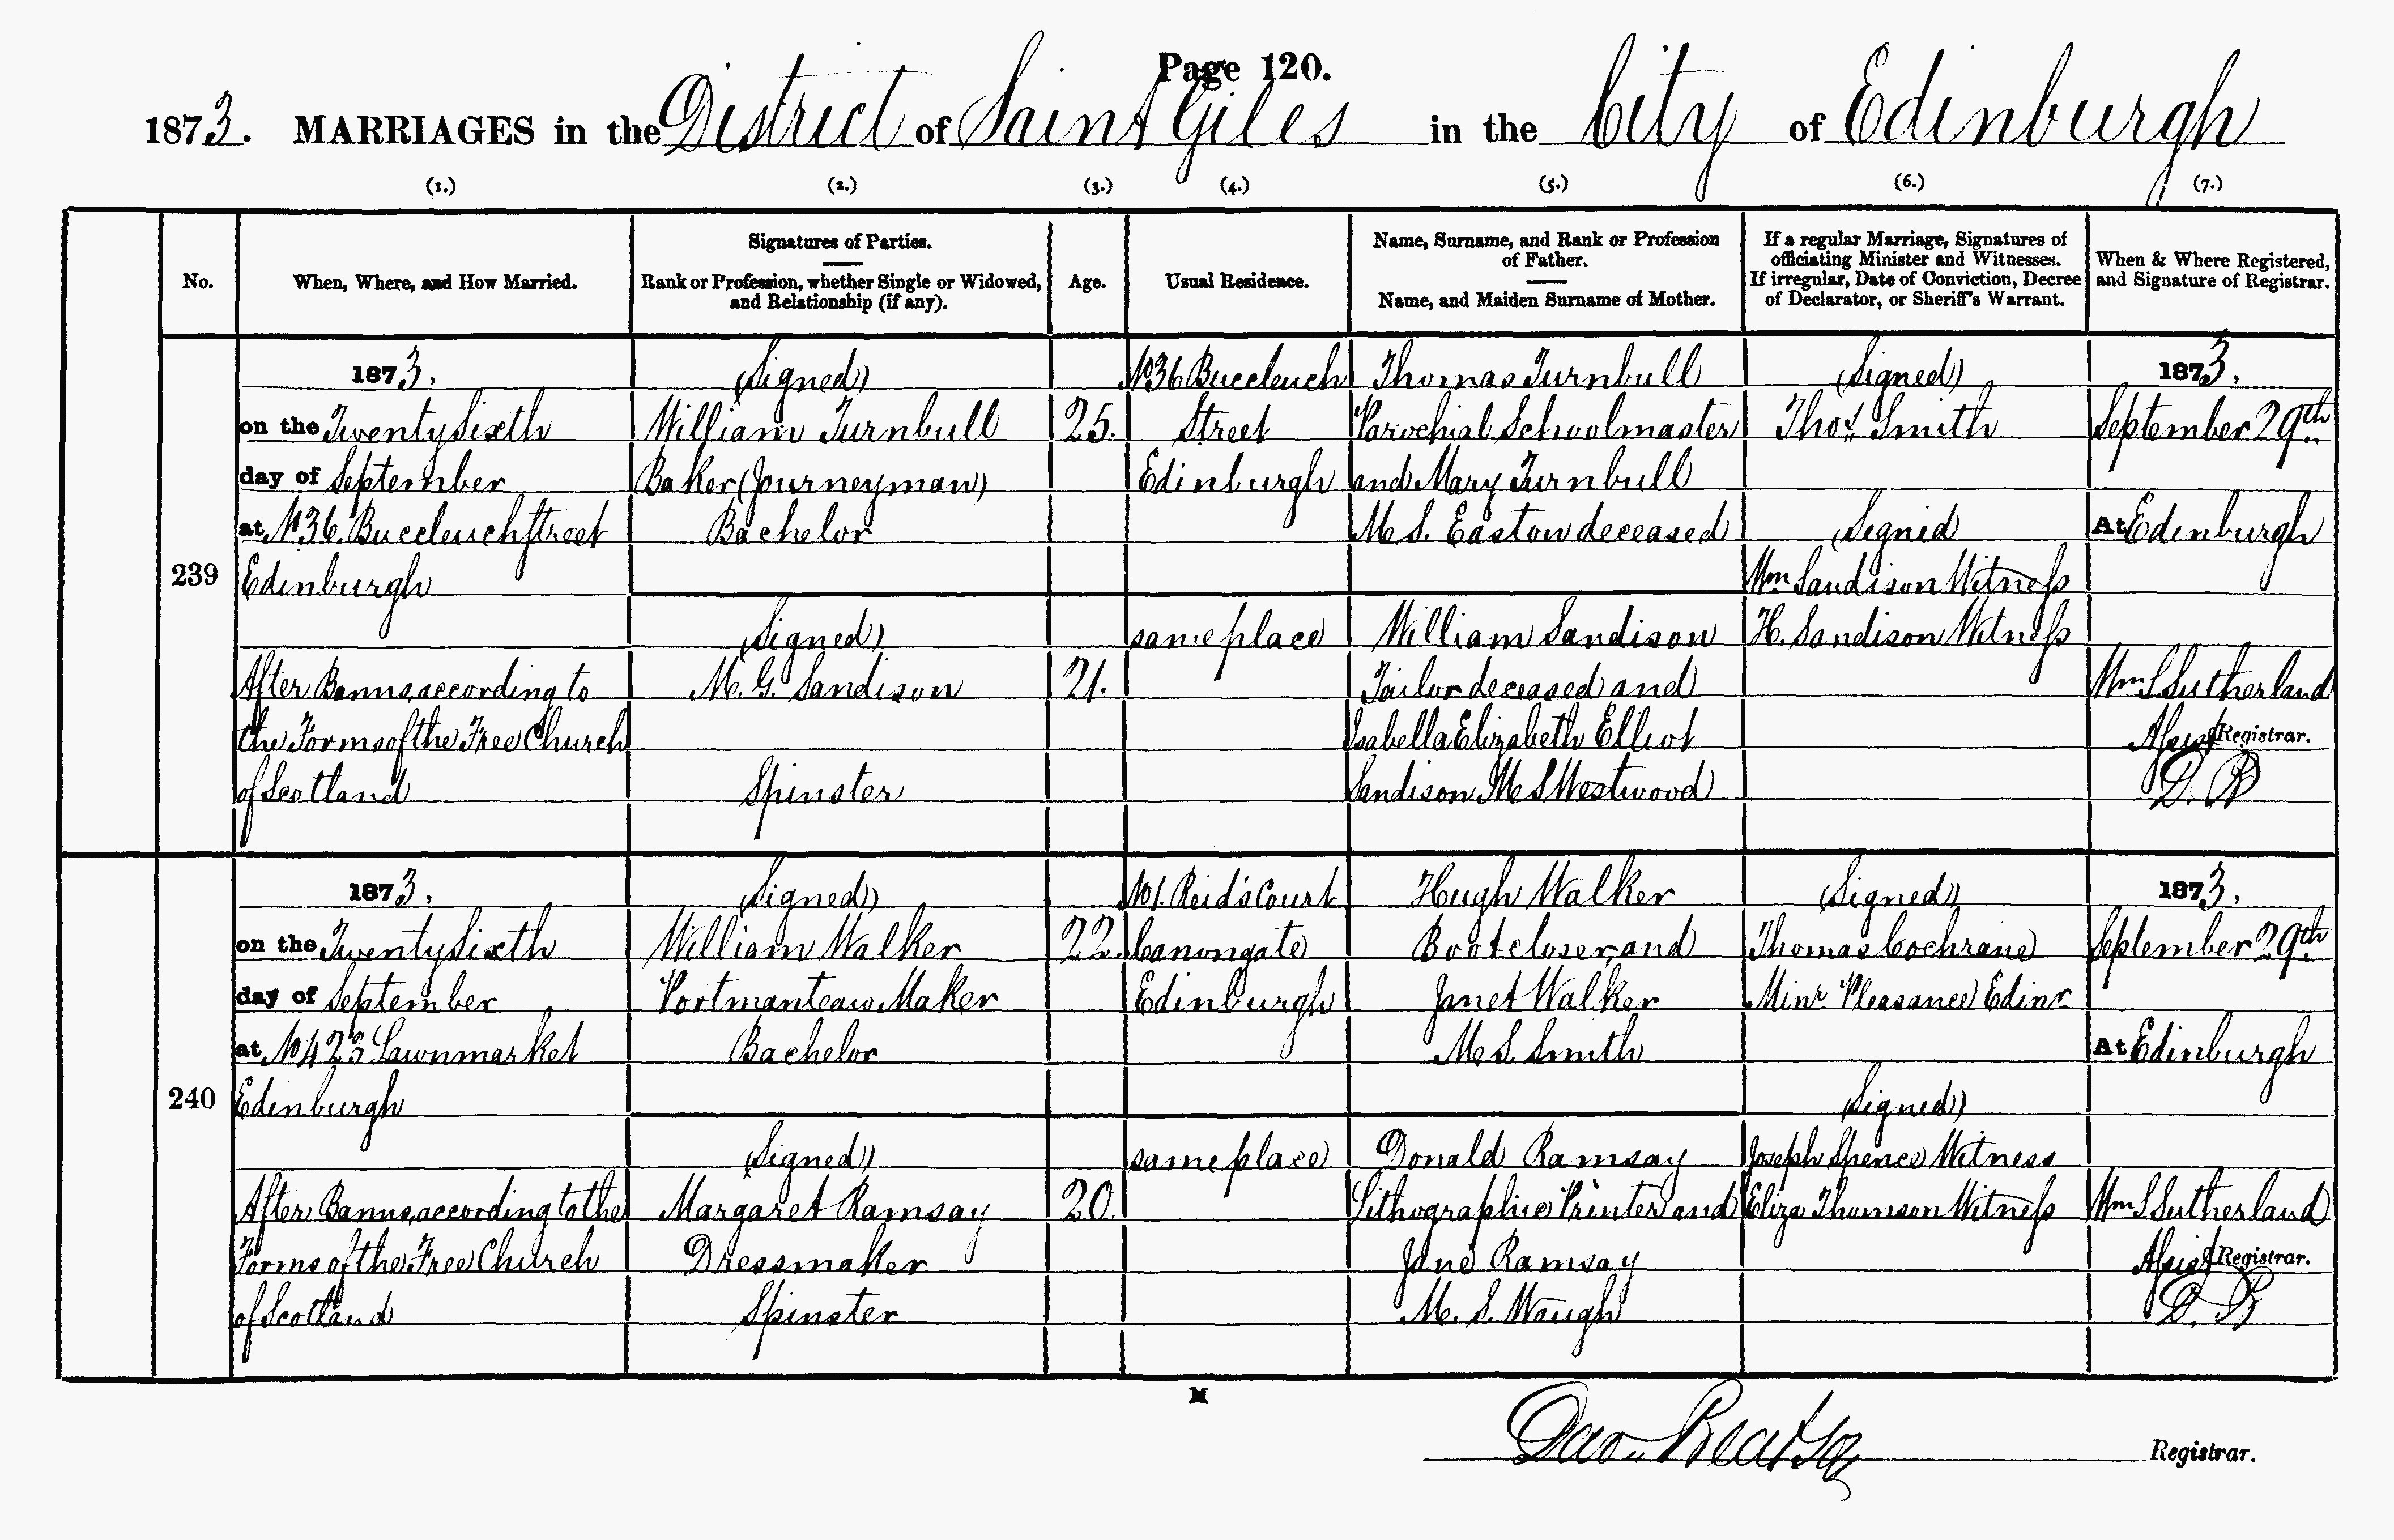 Page 120.
1873. MARRIAGES in the District of Saint Giles in the City of Edinburgh
(1.) (2.) (3.) (4.) (5.) (6.) (7.)
No.
When, Where, and How Married.
Signatures of Parties.
Rank or Profession, whether Single or Widowed,
and Relationship (if any).
Age.
Usual Residence.
Name, Surname, and Rank or Profession
of Father.
Name, and Maiden Surname of Mother.
If a regular Marriage, Signatures of
officiating Minister and Witnesses.
If irregular, Date of Conviction, Decree
of Declarator, or Sheriff's Warrant.
When & Where Registered,
and Signature of Registrar.
239
1873.
on the Twenty Sixth
day of September
at No 36. Buccleuch Street
Edinburgh
After Banns, according to
the Forms of the Free Church
of Scotland
(Signed)
William Turnbull
Baker (Journeyman)
Bachelor
(Signed)
M. G. Sandison
Spinster
25.
21.
No 36 Buccleuch
Street
Edinburgh
same place
Thomas Turnbull
Parochial Schoolmaster
and Mary Turnbull
M S. Easton deceased
William Sandison
Tailor deceased and
Isabella Elizabeth Elliot
Sandison M S Westwood
(Signed)
Thos. Smith
(Signed
Wm Sandison Witness
H. Sandison Witness
1873.
September 29th
At Edinburgh
Wm S Sutherland
Assist Registrar.
D. B
240
1873.
on the Twenty Sixth
day of September
at No 423 Lawnmarket
Edinburgh
After Banns, according to the
Forms of the Free Church
of Scotland
(Signed)
William Walker
Portmanteau Maker
Bachelor
(Signed)
Margaret Ramsay
Dressmaker
Spinster
22.
20.
No 1. Reid's Court
Canongate
Edinburgh
same place
Hugh Walker
Bootcloser, and
Janet Walker
M S. Smith
Donald Ramsay
Lithographic Printer and
Jane Ramsay
M. S. Waugh
(Signed)
Thomas Cochrane
Minr Pleasance Edinr
(Signed)
Joseph Spence Witness
Eliza Thomson Witness
1873.
September 29th
At Edinburgh
Wm S Sutherland
Assist Registrar.
D. B
M
Registrar.